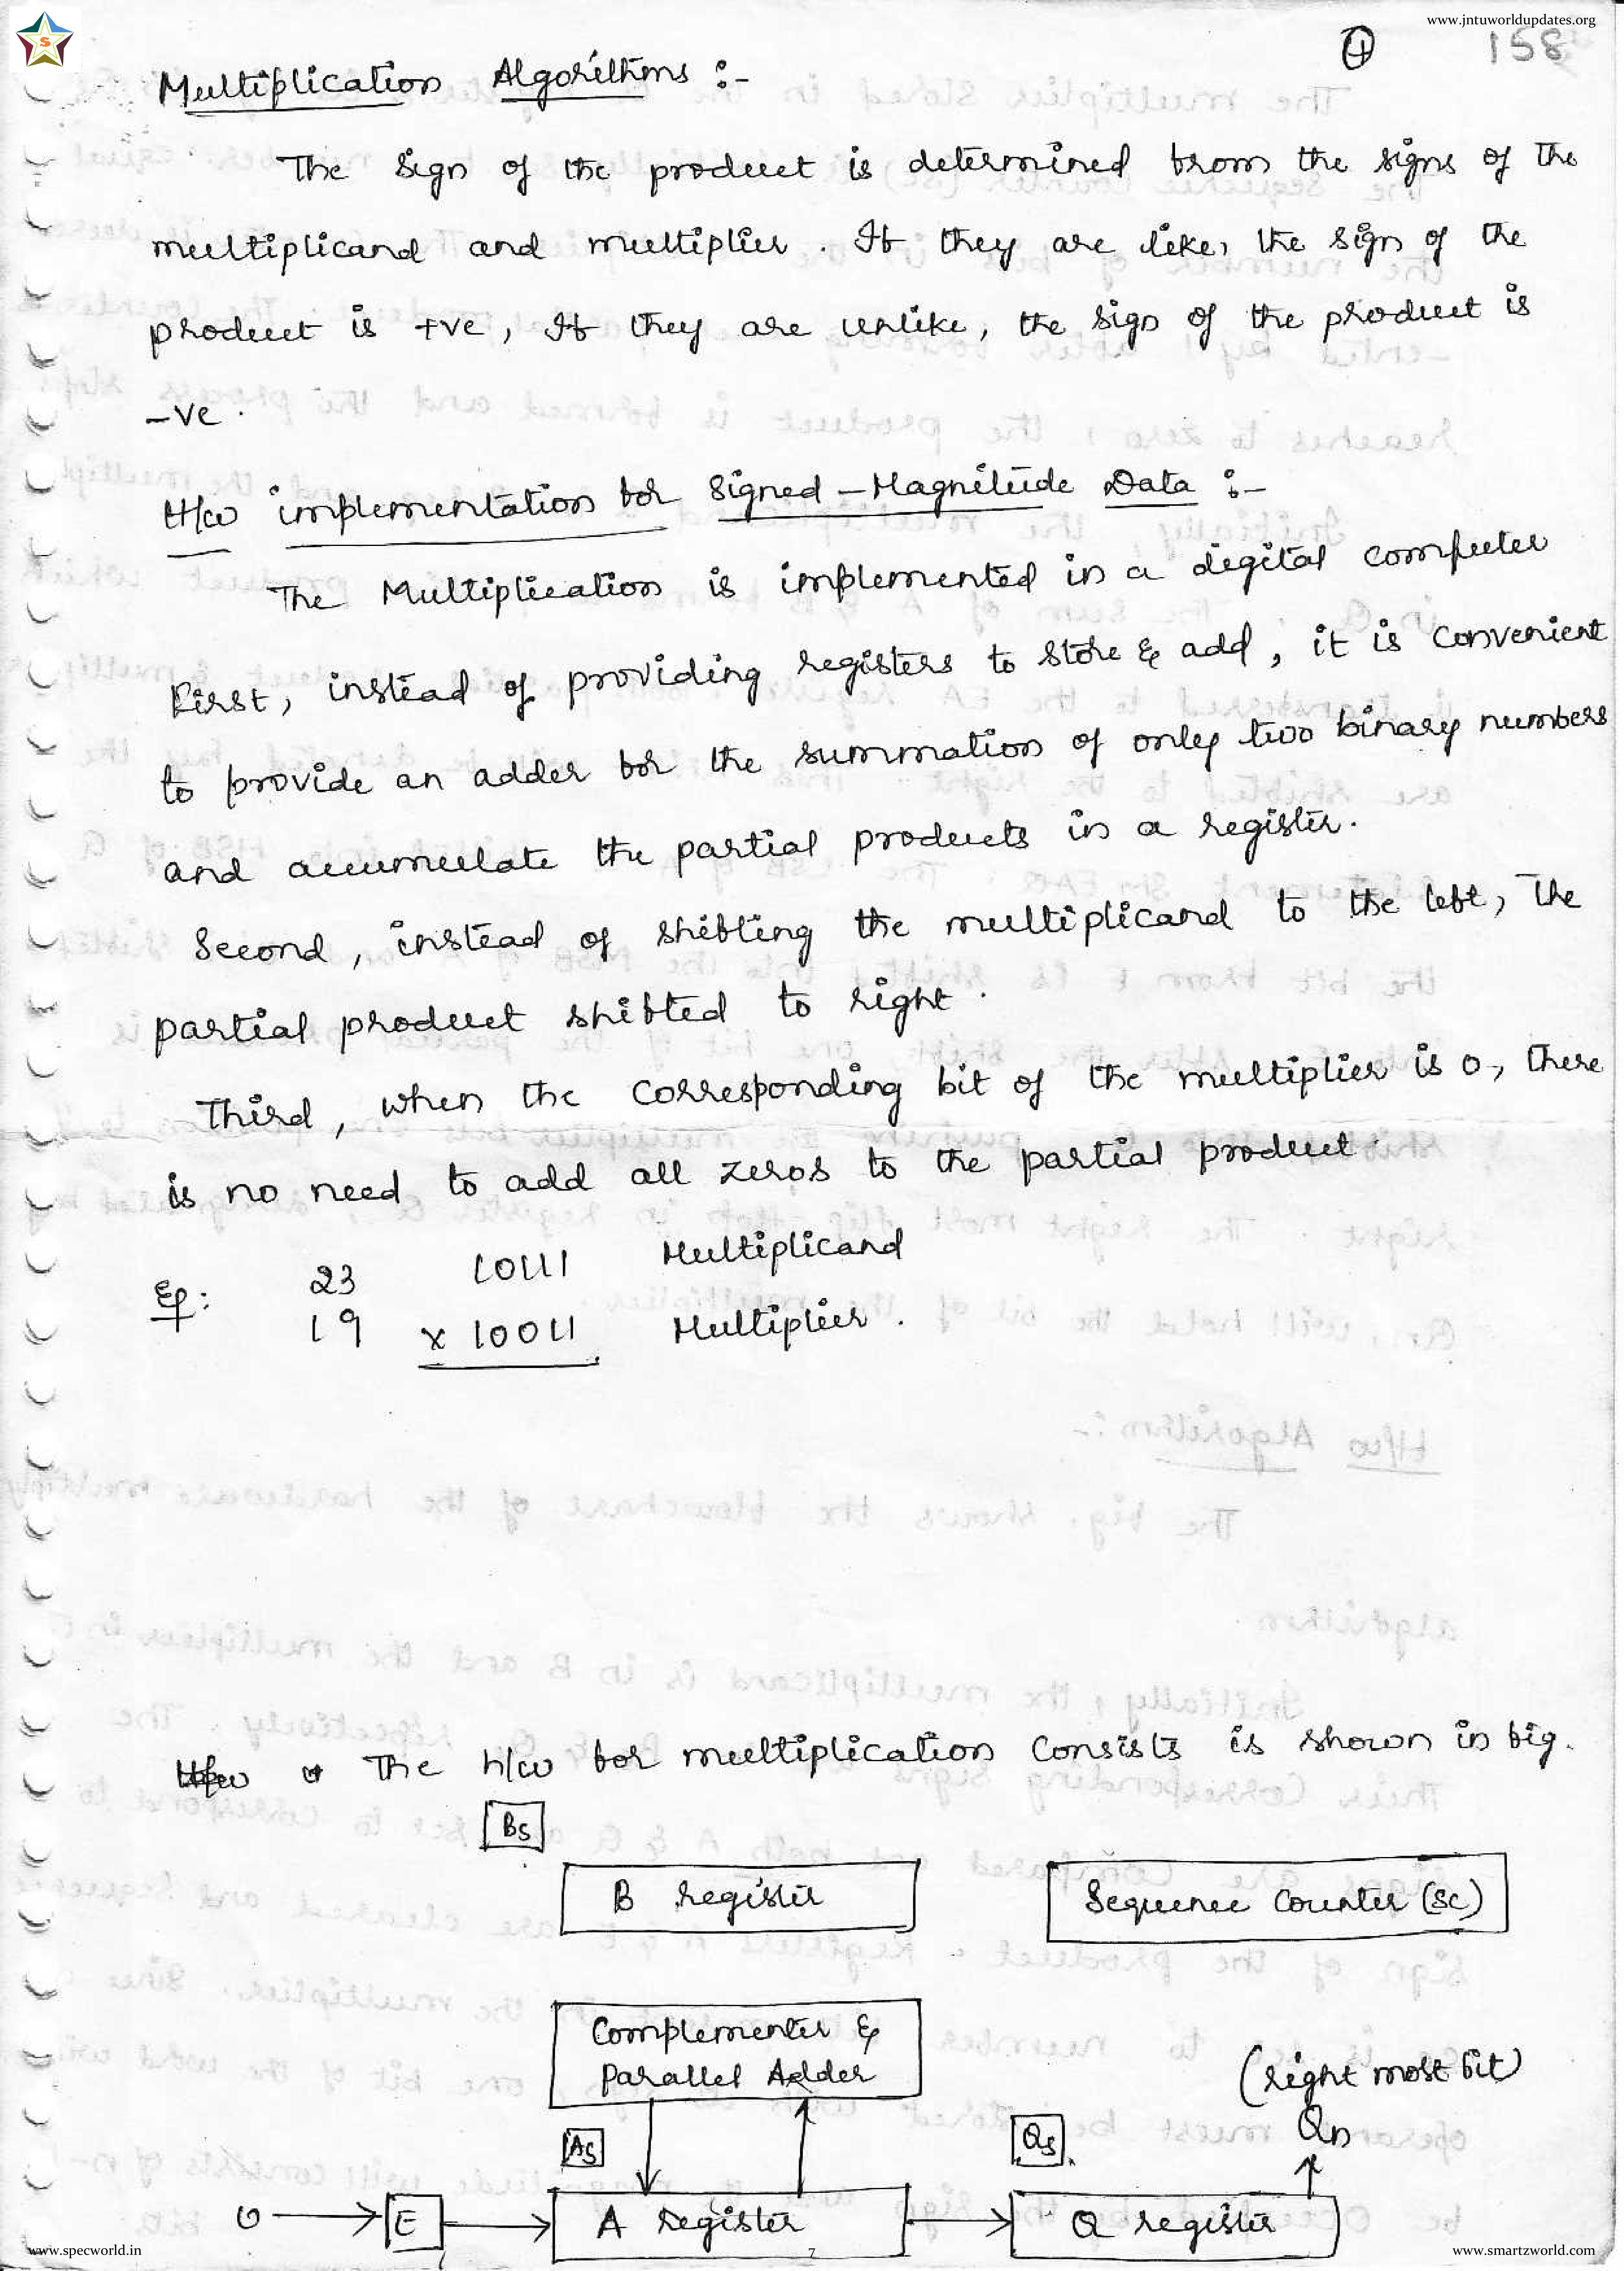 www.jntuworldupdates.org
S
4 158
Multiplication Algorithms :-
The sign of the product is determined from the signs of the
multiplicand and multiplier . If they are like, the sign of the
product is +ve , If they are unlike, the sign of the product is
-ve .
H/w implementation for Signed - Magnitude Data :-
The Multiplication is implemented in a digital computer
First, instead of providing registers to store & add, it is convenient
to provide an adder for the summation of only two binary numbers
and accumulate the partial products in a register.
Second, instead of shifting the multiplicand to the left, The
partial product shifted to right .
Third, when the corresponding bit of the multiplier is 0, there
is no need to add all zeros to the partial product .
Eg: 23 10111 Multiplicand
19 x 10011 Multiplier .
The h/w for multiplication consists is shown in fig.
Bs
B register
Sequence Counter (SC)
Complementer &
Parallel Adder
(right most bit)
As
Qs
Qn
0
E
A register
Q register
www.specworld.in
7
www.smartzworld.com